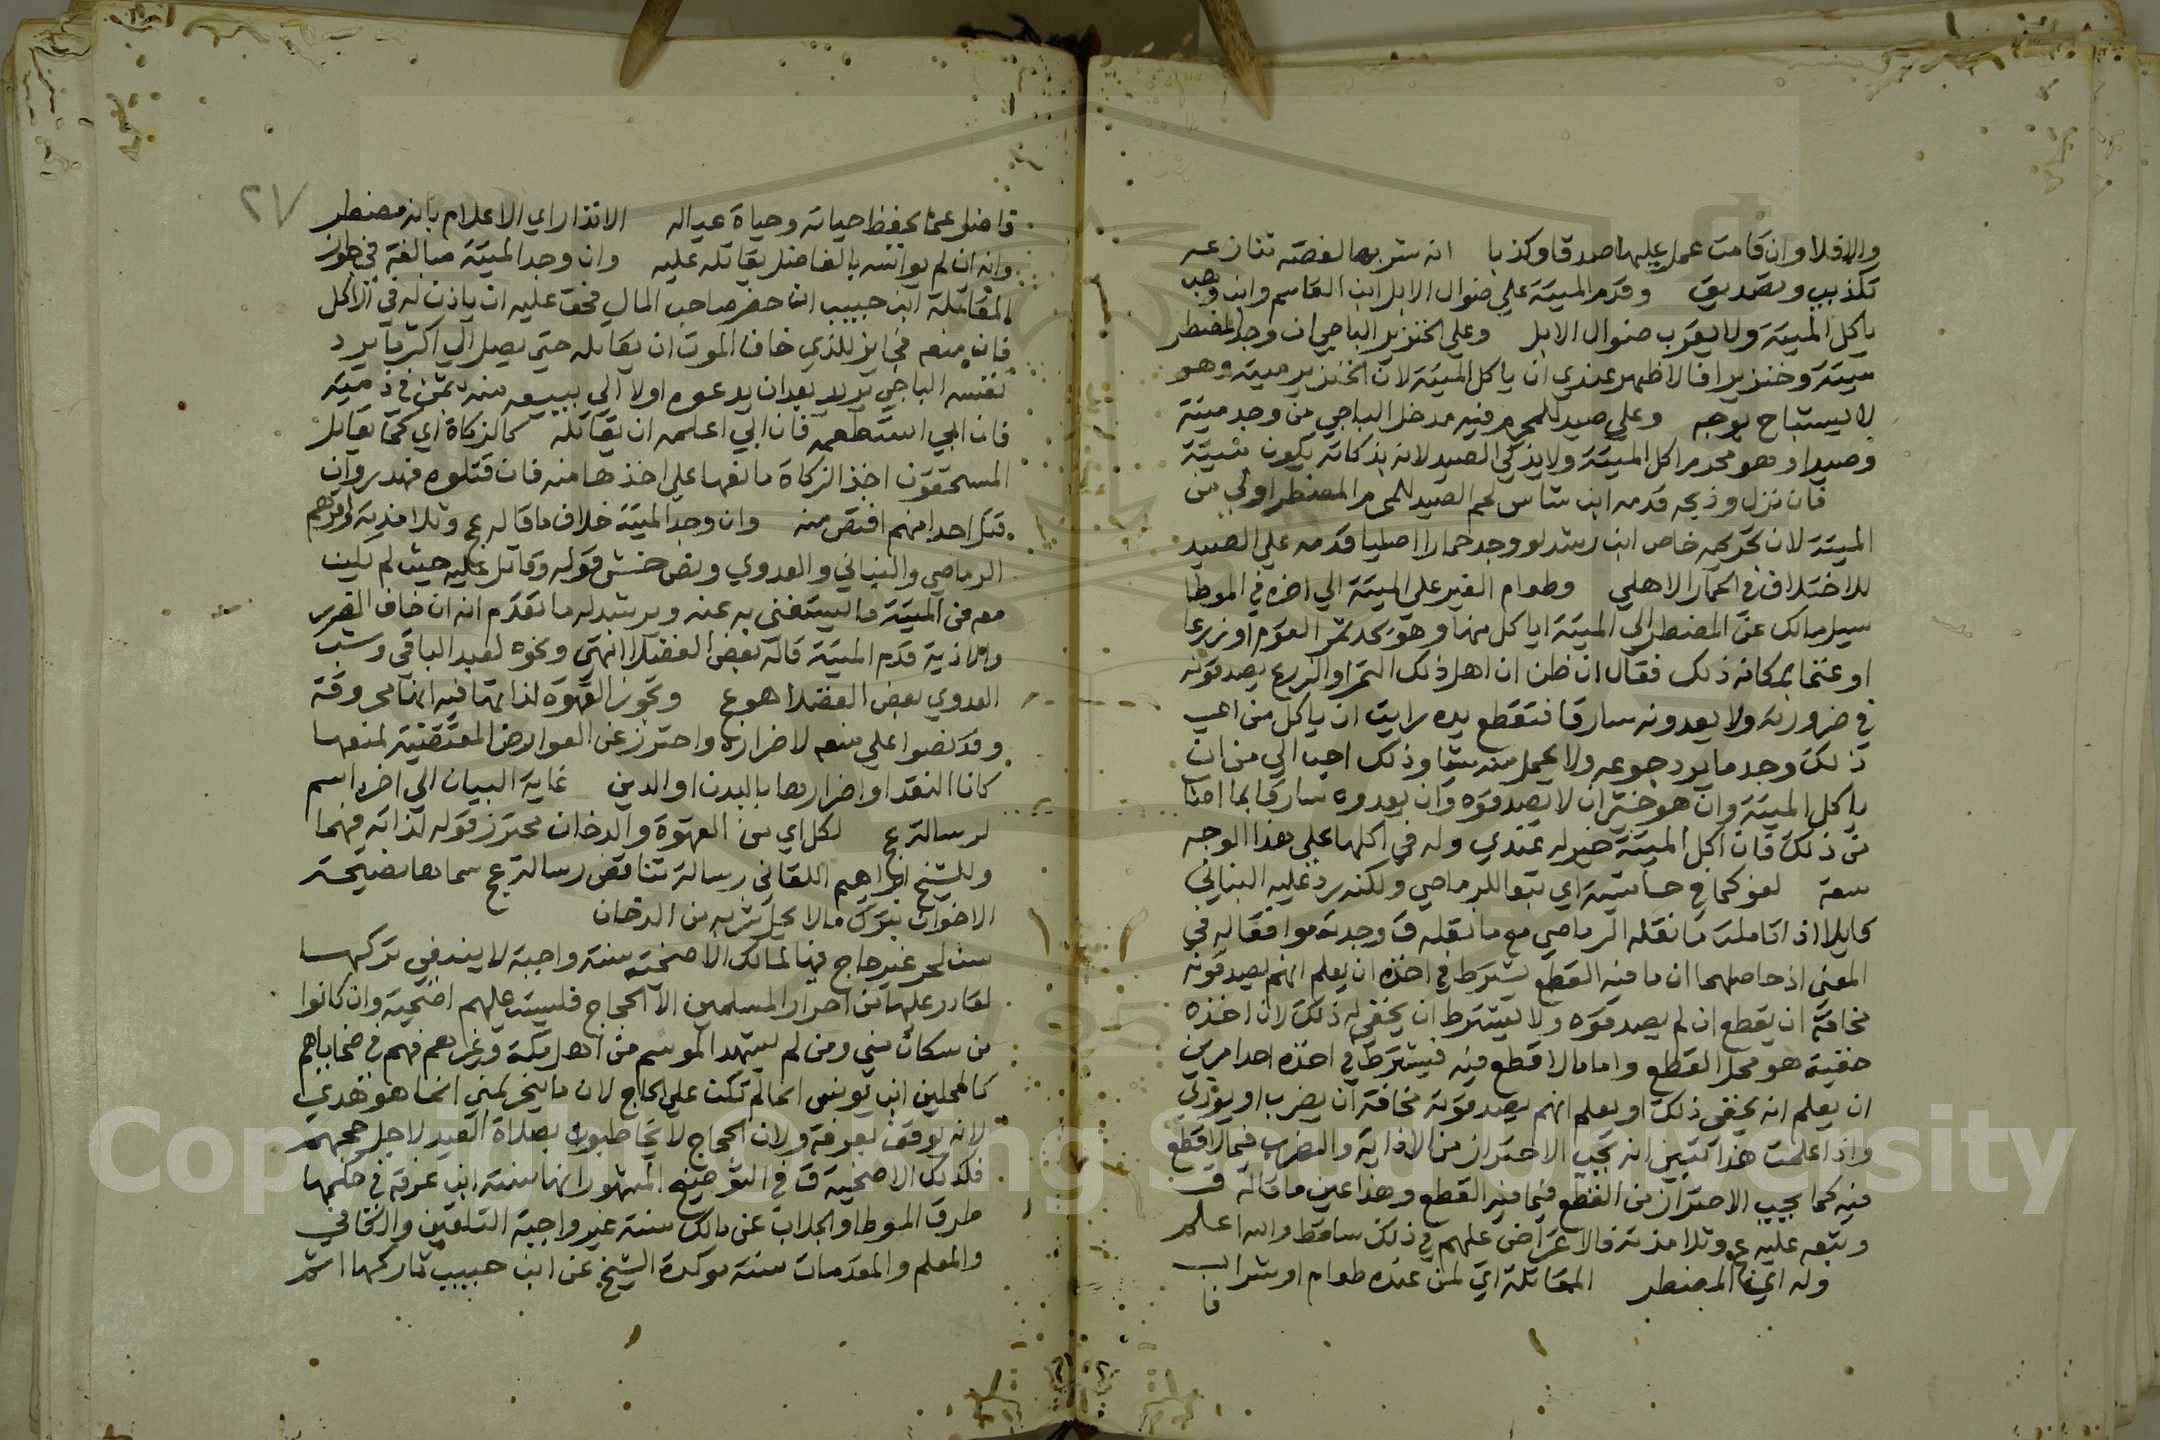 والا فلا وان قامت عمل عليها صدقا وكذبا انه شربها لغصة تنازعه
تكذيب وتصديق وقدم الميتة علي ضوال الابل ابن القاسم وابن وهب
ياكل الميتة ولا يقرب ضوال الابل وعلي الخنزير الباجي ان وجد المضطر
ميتة وخنزيرا فالاظهر عندي ان ياكل الميتة لان الخنزير ميتة وهو
لا يستباح بوجه وعلي صيد للمحرم فيه مدخل الباجي من وجد ميتة
وصيدا وهو محرم اكل الميتة ولا يذكي الصيد لانه بذكاته يكون ميتة
فان نزل وذبحه قدمه ابن شاس لحم الصيد للمحرم المضطر اولي من
الميتة لان تحريمه خاص ابن رشد لو وجد حمارا اهليا قدمه علي الصيد
للاختلاف في الحمار الاهلي وطعام الغير علي الميتة الي اخره في الموطا
سيل مالك عن المضطر الي الميتة اياكل منها وهو يجد ثمر القوم او زرعا
او غنما بمكانه ذلك فقال ان ظن ان اهل ذلك الثمر او الزرع يصدقونه
في ضرورته ولا يعدونه سارقا فتقطع يده رايت ان ياكل من اي
ذلك وجد ما يرد جوعه ولا يحمل منه شيا وذلك احب الي من ان
ياكل الميتة وان هو خشي ان لا يصدقوه وان يعدوه سارقا بما اصاب
من ذلك فان اكل الميتة خير له عندي وله في اكلها علي هذا الوجه
سعة لغو كما في حاشيته اي تبعا للرماصي ولكنه رد عليه البناني
قايلا اذا تاملت ما نقله الرماصي مع ما نقله ق وجدته موافقا له في
المعني اذ حاصلهما ان ما فيه القطع يشترط في اخذه ان يعلم انهم يصدقونه
مخافة ان يقطع ان لم يصدقوه ولا يشترط ان يخفي له ذلك لان اخذه
خفية هو محل القطع واما ما لا قطع فيه فيشترط في اخذه احد امرين
ان يعلم انه يخفي ذلك او يعلم انهم يصدقونه مخافة ان يضرب او يوذي
واذا علمت هذا تبين انه يجب الاحتراز من الاذاية والضرب فيما لا قطع
فيه كما يجب الاحتراز من القطع فيما فيه القطع وهذا عين ما قاله ق
وتبعه عليه عج وتلامذته فالاعتراض عليهم في ذلك ساقط والله اعلم
وله اي المضطر المقاتلة اي لمن عنده طعام او شراب
فا
٢٧
فاضل عما يحفظ حياته وحياة عياله الانذار اي الاعلام بانه مضطر
وانه ان لم يواسه بالفاضل يقاتله عليه وان وجد الميتة مبالغة في جواز
المقاتلة ابن حبيب ان حضر صاحب المال فحق عليه ان ياذن له في الاكل
فان منعه فجايز للذي خاف الموت ان يقاتله حتي يصل الي اكل ما يرد
نفسه الباجي يريد بعد ان يدعوه اولا الي بيعه منه بثمن في ذمته
فان ابي استطعمه فان ابي اعلمه ان يقاتله كالزكاة اي كما يقاتل
المستحقون اخذ الزكاة مانعها علي اخذها منه فان قتلوه فهدر وان
قتل احدا منهم اقتص منه وان وجد الميتة خلاف ما قاله عج وتلامذته واقرهم
الرماصي والبناني والعدوي ونص خش قوله وقاتل عليه حيث لم يكن
معه من الميتة ما يستغني به عنه ويرشد له ما تقدم انه ان خاف الضرر
والاذية قدم الميتة قاله بعض الفضلا انتهي ونحوه لعبد الباقي وشب
العدوي بعض الفضلا هو عج وتجوز القهوة لذاتها فيه انها محروقة
وقد نصوا علي منعه لاضراره واحترز عن العوارض المقتضية لمنعها
كاتلاف النقد او اضرارها بالبدن او الدين غاية البيان الي اخره اسم
لرسالة عج لكل اي من القهوة والدخان محترز قوله لذاته فيهما
وللشيخ ابراهيم اللقاني رسالة تناقض رسالة عج سماها نصيحة
الاخوان بترك ما لا يحل شربه من الدخان
سن لحر غير حاج فيها لمالك الاضحية سنة واجبة لا ينبغي تركها
لقادر عليها من احرار المسلمين الا الحجاج فليست عليهم اضحية وان كانوا
من سكان مني ومن لم يشهد الموسم من اهل مكة وغيرهم فهم في ضحاياهم
كالمحلين ابن يونس انما لم تكن علي الحاج لان ما ينحر بمني انما هو هدي
لانه يوقف بعرفة ولان الحجاج لا يخاطبون بصلاة العيد لاجل حجهم
فكذلك الاضحية ق في التوضيح المشهور انها سنة ابن عرفة في حكمها
طرق الموطا والجلاب عن مالك سنة غير واجبة التلقين والكافي
والمعلم والمقدمات سنة موكدة الشيخ عن ابن حبيب تاركها اثم
Copyright © King Saud University